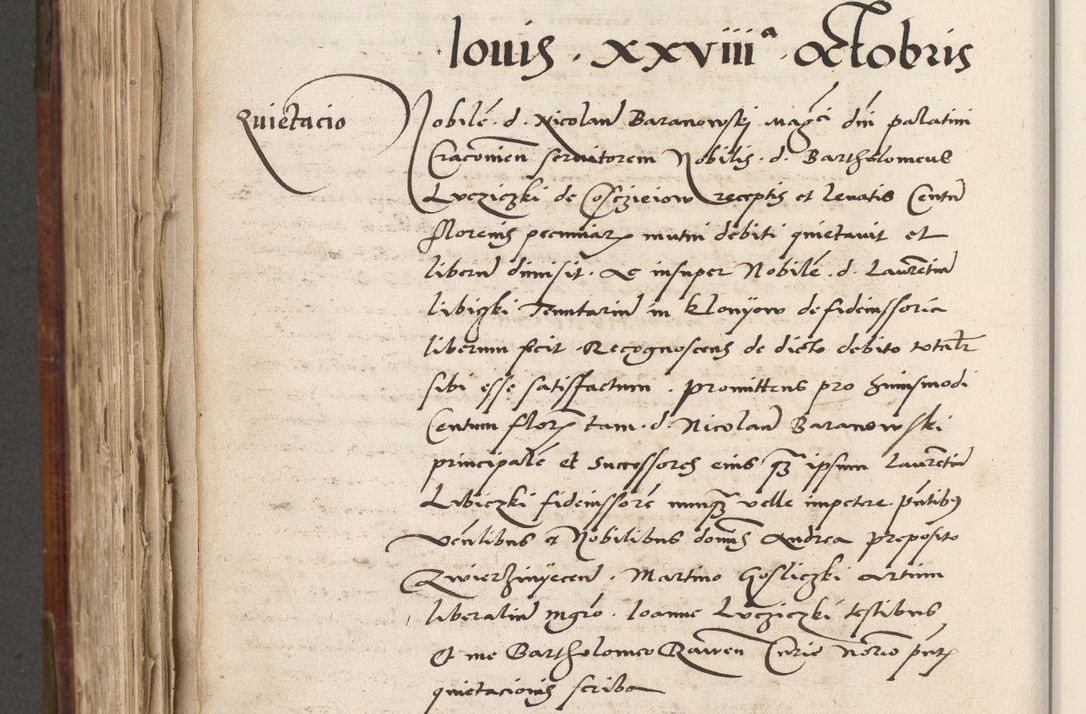 Iouis · xxviiiª · Octobris
Quietacio
Nobilē · d · Nicolaū Baranowskj Magci dn̄i palatini
Cracouien̄ seruitorem Nobilis · d · Bartholomeus
Lvcziczki de Cosczieiow receptis et leuatis Centū
florenis pecuniarꝝ mutui debiti quietauit et
liberū dimisit · Ac insuper Nobilē · d · Laurētiū
libiczki Tenutariū in Klonyow de fideiussoria
liberum fecit · Recognoscens de dicto debito totalr̄
sibi esse satisfactum · promittens pro huiusmodi
Centum florꝝ tam · d · Nicolaū Baranowski
principalē et Successores eius qꝫ ipsum Laurētiū
Libiczki fideiussorē nunqꝫ velle impetere · pn̄tibꝰ
ven̄libus et Nobilibus domīs Andrea preposito
Zwierzinyecen̄ · Martino Gosliczki artium
liberaliū mgrō · Ioanne Lvcziczki testibus
Et me Bartholomeo Rawen̄ Curie Notrio pn̄tꝭ
quietacionis scriba